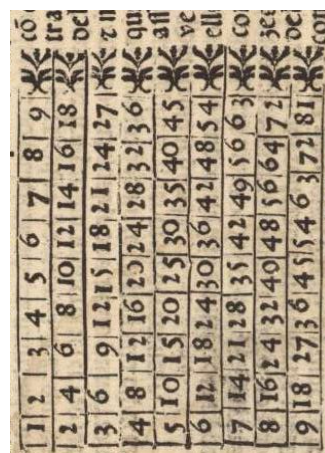 1 2 3 4 5 6 7 8 9
2 4 6 8 10 12 14 16 18
3 6 9 12 15 18 21 24 27
4 8 12 16 20 24 28 32 36
5 10 15 20 25 30 35 40 45
6 12 18 24 30 36 42 48 54
7 14 21 28 35 42 49 56 63
8 16 24 32 40 48 56 64 72
9 18 27 36 45 54 63 72 81
cõ
tra
qu
ve
co
de
con